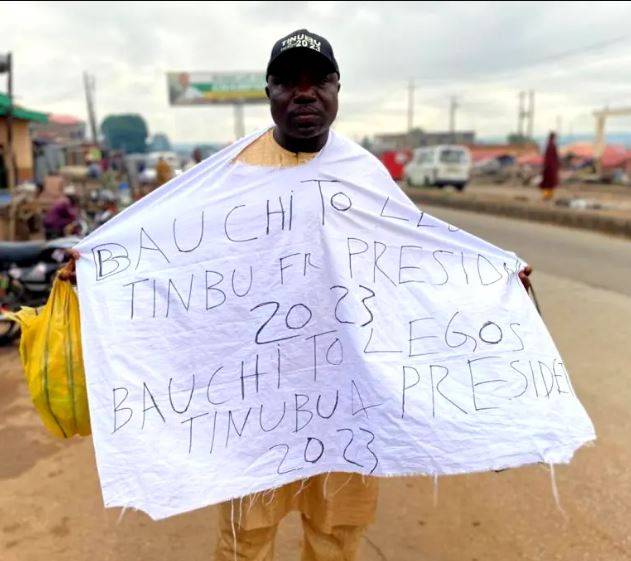 TINUBU
2023
BAUCHI TO
TINBU FR PRESID
2023
BAUCHI TO LEGOS
TINUBU 4 PRESIDE
2023